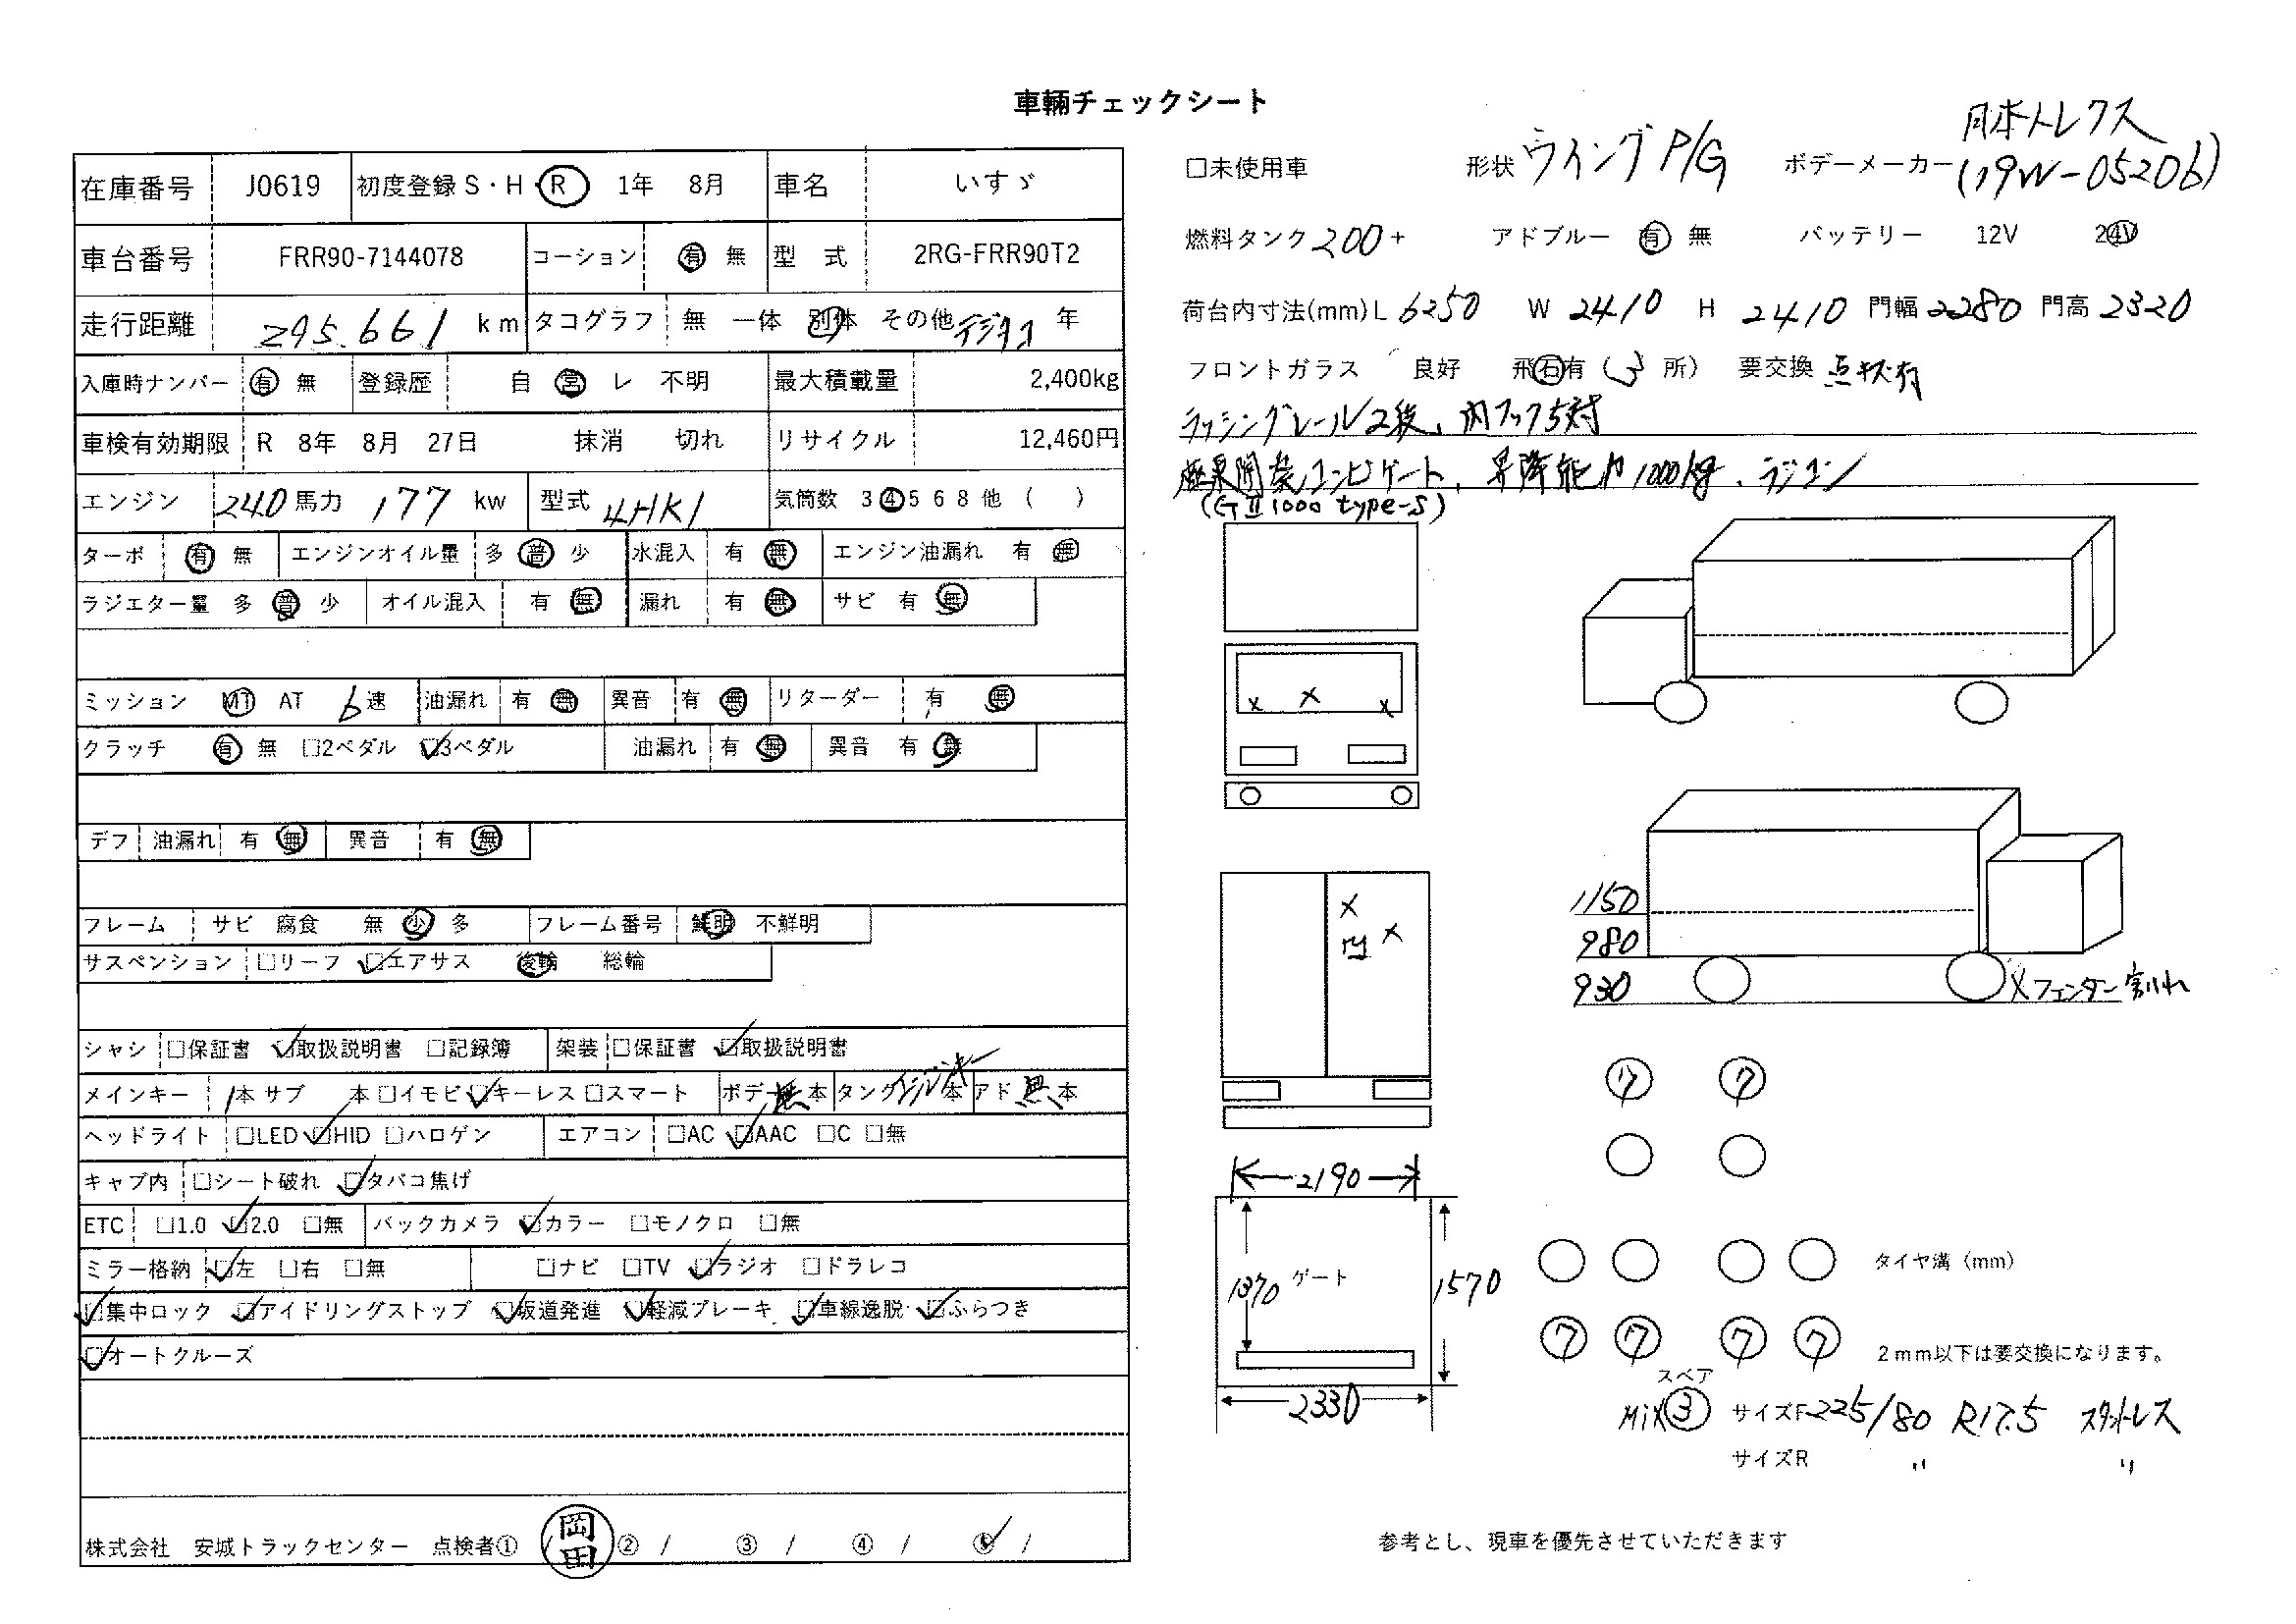 車輛チェックシート
在庫番号 J0619 初度登録 S・H・R 1年 8月 車名 いすゞ
車台番号 FRR90-7144078 コーション 有 無 型 式 2RG-FRR90T2
走行距離 295.661 km タコグラフ 無 一体 別体 その他 デジタコ 年
入庫時ナンバー 有 無 登録歴 自 営 レ 不明 最大積載量 2,400kg
車検有効期限 R 8年 8月 27日 抹消 切れ リサイクル 12,460円
エンジン 240馬力 177 kw 型式 4HK1 気筒数 3 4 5 6 8 他 ( )
ターボ 有 無 エンジンオイル量 多 普 少 水混入 有 無 エンジン油漏れ 有 無
ラジエター量 多 普 少 オイル混入 有 無 漏れ 有 無 サビ 有 無
ミッション MT AT 6速 油漏れ 有 無 異音 有 無 リターダー 有 無
クラッチ 有 無 □2ペダル ☑3ペダル 油漏れ 有 無 異音 有 無
デフ 油漏れ 有 無 異音 有 無
フレーム サビ 腐食 無 少 多 フレーム番号 鮮明 不鮮明
サスペンション □リーフ ☑エアサス 後輪 総輪
シャシ □保証書 ☑取扱説明書 □記録簿 架装 □保証書 ☑取扱説明書
メインキー 1本 サブ 本 □イモビ ☑キーレス □スマート ボデー無本 タンク エンジンキー 本 アド無本
ヘッドライト □LED ☑HID □ハロゲン エアコン □AC ☑AAC □C □無
キャブ内 □シート破れ ☑タバコ焦げ
ETC □1.0 ☑2.0 □無 バックカメラ ☑カラー □モノクロ □無
ミラー格納 ☑左 □右 □無 □ナビ □TV ☑ラジオ □ドラレコ
☑集中ロック ☑アイドリングストップ ☑坂道発進 ☑軽減ブレーキ ☑車線逸脱 ☑ふらつき
☑オートクルーズ
株式会社 安城トラックセンター 点検者① / 岡田 ② / ③ / ④ / ⑤ /
□未使用車 形状 ウイング P/G ボデーメーカー 日本トレクス (19W-05206)
燃料タンク 200 + アドブルー 有 無 バッテリー 12V 24V
荷台内寸法(mm) L 6250 W 2410 H 2410 門幅 2280 門高 2320
フロントガラス 良好 飛石有 (3 所) 要交換 点状有
ラッシングレール2段、内フック5対
極東開発パワーゲート、昇降能力1000kg、ラジコン
(GⅡ1000 type-S)
1150
980
930
× フェンダー割れ
凹
7 7
2190
1370 ゲート 1570
2330
タイヤ溝 (mm)
7 7 7 7
2mm以下は要交換になります。
スペア
Mix ③ サイズF 225/80 R17.5 スタットレス
サイズR 〃 〃
参考とし、現車を優先させていただきます